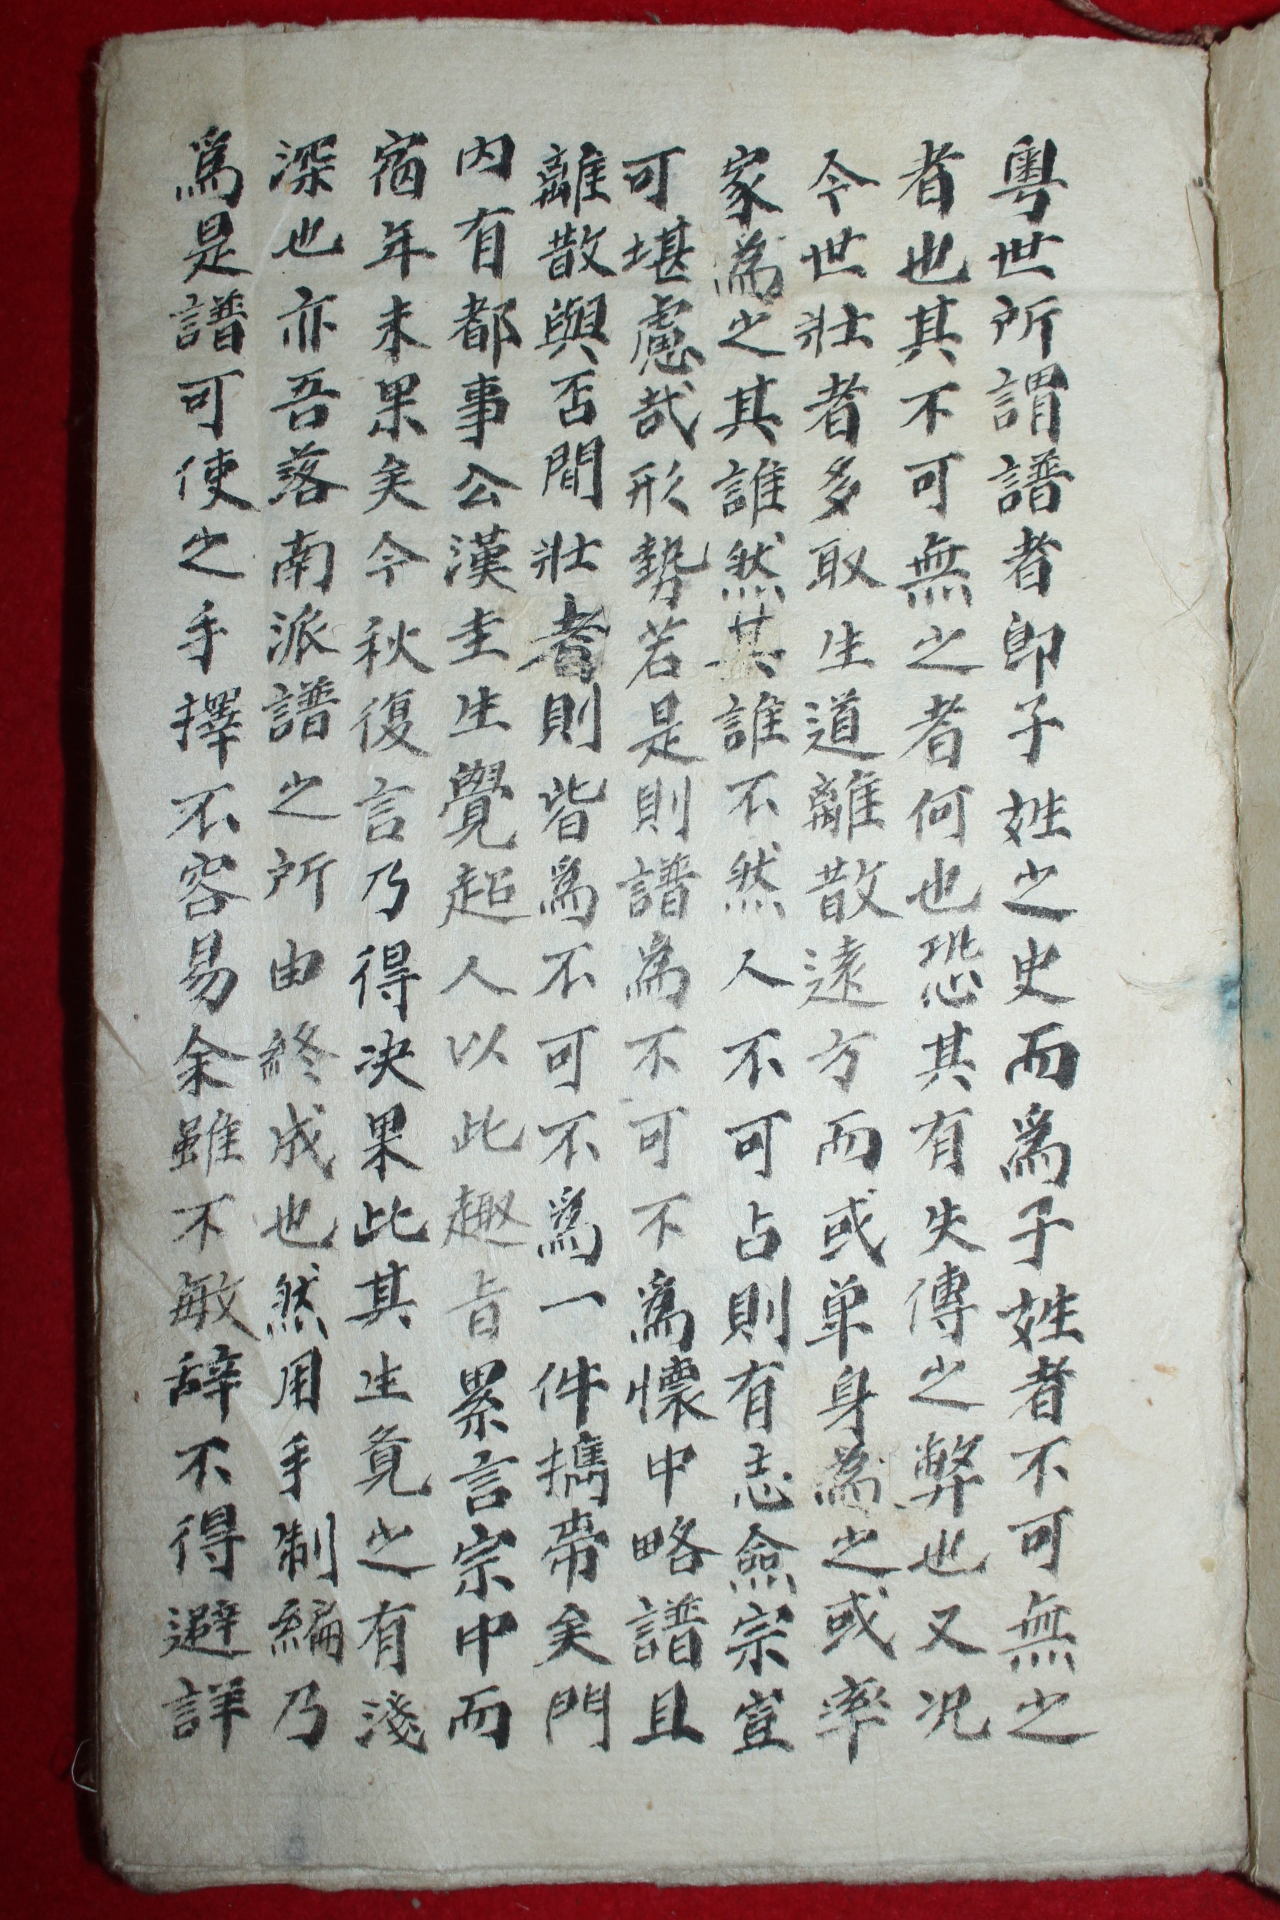 粤世所謂譜者卽子姓之史而爲子姓者不可無之
者也其不可無之者何也恐其有失傳之弊也又况
今世壯者多取生道離散遠方而或单身為之或率
家為之其誰然其誰不然人不可占則有志僉宗豈
可堪慮哉形勢若是則譜為不可不爲懷中略譜且
離散與否間壯者則皆爲不可不爲一件攜帶矣門
內有都事公漢圭生覺超人以此趣旨累言宗中而
宿年未果矣今秋復言乃得决果此其生覔之有淺
深也亦吾落南派譜之所由終成也然用手制編乃
爲是譜可使之手擇不容易余雖不敏辞不得避詳